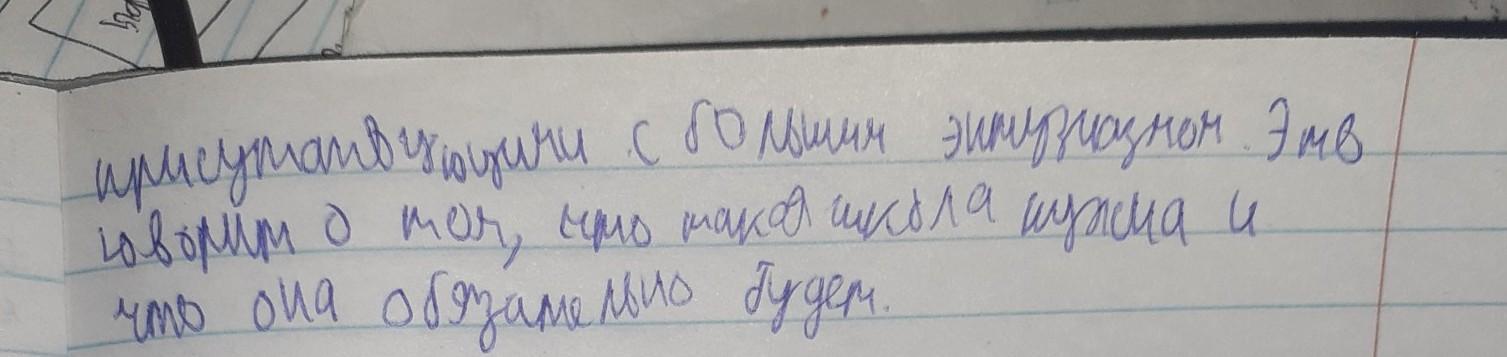 присутствующими с большим энтузиазмом. Это
говорит о том, что такая школа нужна и
что она обязательно будет.